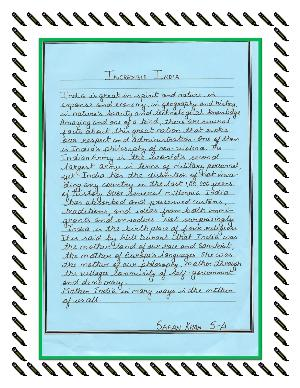 INCREDIBLE INDIA
India is great in spirit and nature in
expanse and economy, in geography and history,
in nature's beauty and technological knowledge
Amazing and one of a kind, there are several
facts about this great nation that evoke
our respect and administration. One of them
is India's philosophy of non violence. The
Indian Army is the world's second
largest army in terms of military personnel
yet India has the distinction of not inva
ding any country in the last 100,000 years
of history. Over several millennia India
has absorbed and preserved customs,
traditions, and ideas from both immi-
grants and invaders. Not surprisingly
India is the birth place of four religions
It is said by Will Durant that India was
the mother land of our race and Sanskrit
the mother of Europe's languages. She was
the mother of our philosophy, mother through
the villages community of self government
and democracy.
Mother India in many ways is the mother
of us all
KHAN 5-A